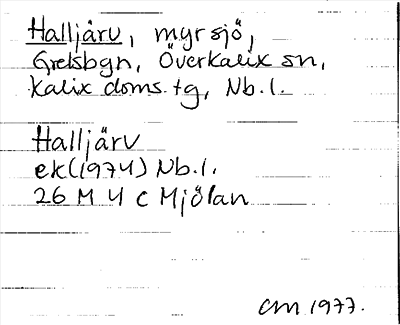 Halljärv, myrsjö,
Grelsbyn, Överkalix sn,
Kalix doms. tg, Nb. l.
Halljärv
ek (1974) Nb. l.
26 M 4 c Mjölan
CM 1977.